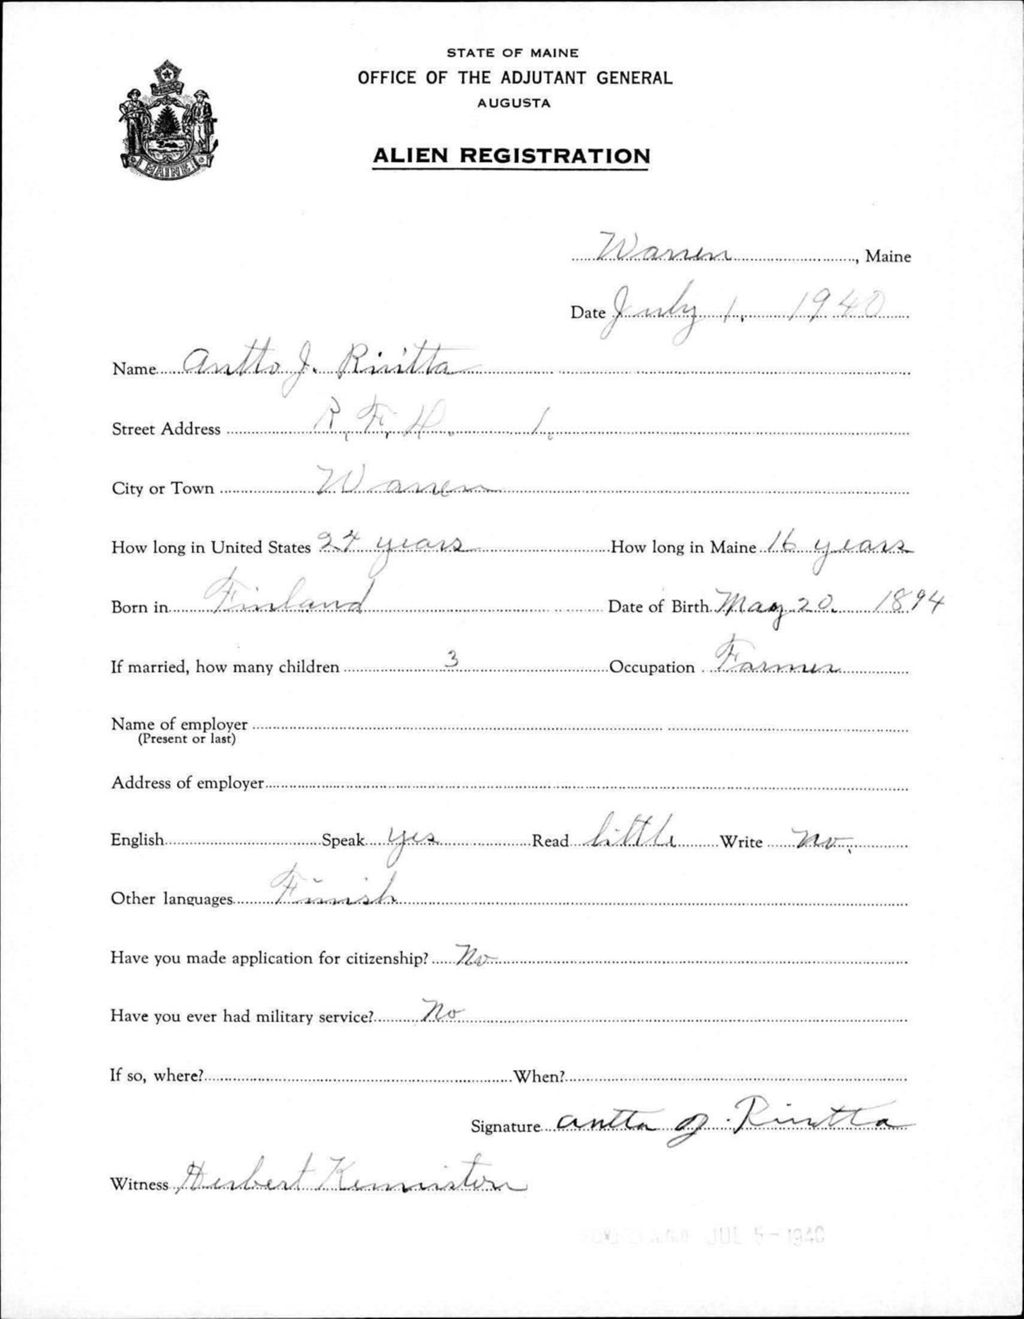 STATE OF MAINE
OFFICE OF THE ADJUTANT GENERAL
AUGUSTA
MAINE
ALIEN REGISTRATION
Warren, Maine
Date July 1, 1940
Name Antto J. Rinitta
Street Address R. F. D. 1.
City or Town Warren
How long in United States 24 years How long in Maine 16 years
Born in Finland Date of Birth May 20. 1894
If married, how many children 3 Occupation Farmer
Name of employer
(Present or last)
Address of employer
English Speak yes Read little Write no.
Other languages Finish
Have you made application for citizenship? No
Have you ever had military service? No
If so, where? When?
Signature Antta J. Rintta
Witness Herbert Kenniston
A.G.O. JUL 5 - 1940